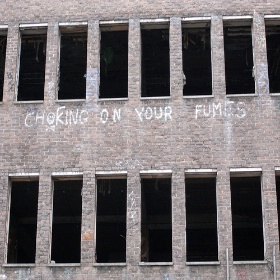 CHOKING ON YOUR FUMES